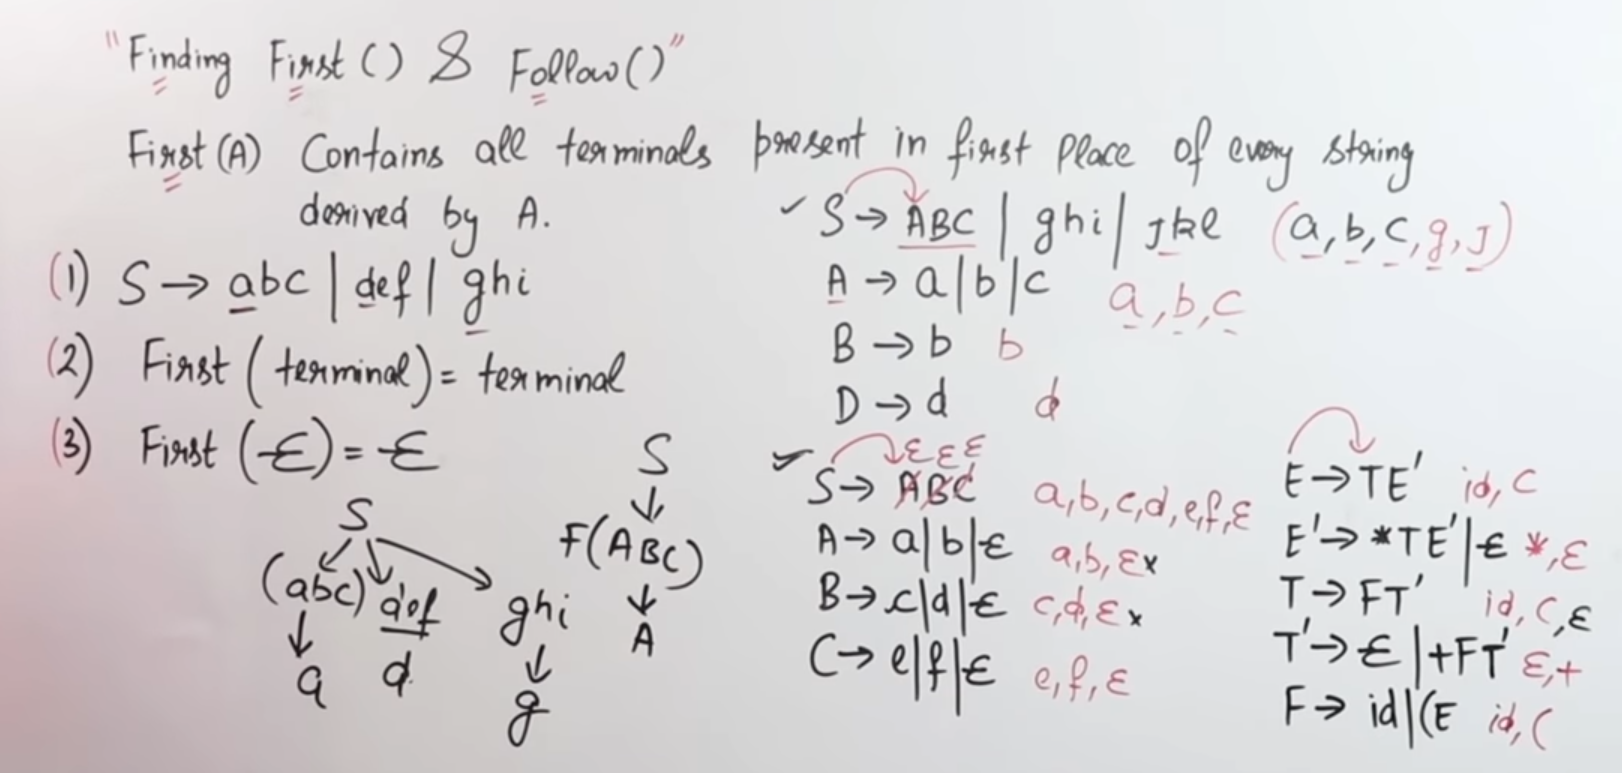 "Finding First() & Follow()"
First(A) Contains all terminals present in first place of every string
derived by A.
(1) S → abc | def | ghi
(2) First (terminal) = terminal
(3) First (Є) = Є
S
(abc) def ghi
a d g
S
F(ABC)
A
✓ S → ABC | ghi | Jkl (a, b, c, g, J)
A → a|b|c a, b, c
B → b b
D → d d
ε ε ε
✓ S → ABC a, b, c, d, e, f, ε
A → a|b|Є a, b, ε x
B → c|d|Є c, d, ε x
C → e|f|Є e, f, ε
E → TE' id, (
E' → *TE' | Є *, ε
T → FT' id, (, ε
T' → Є | +FT' ε, +
F → id|(E id, (